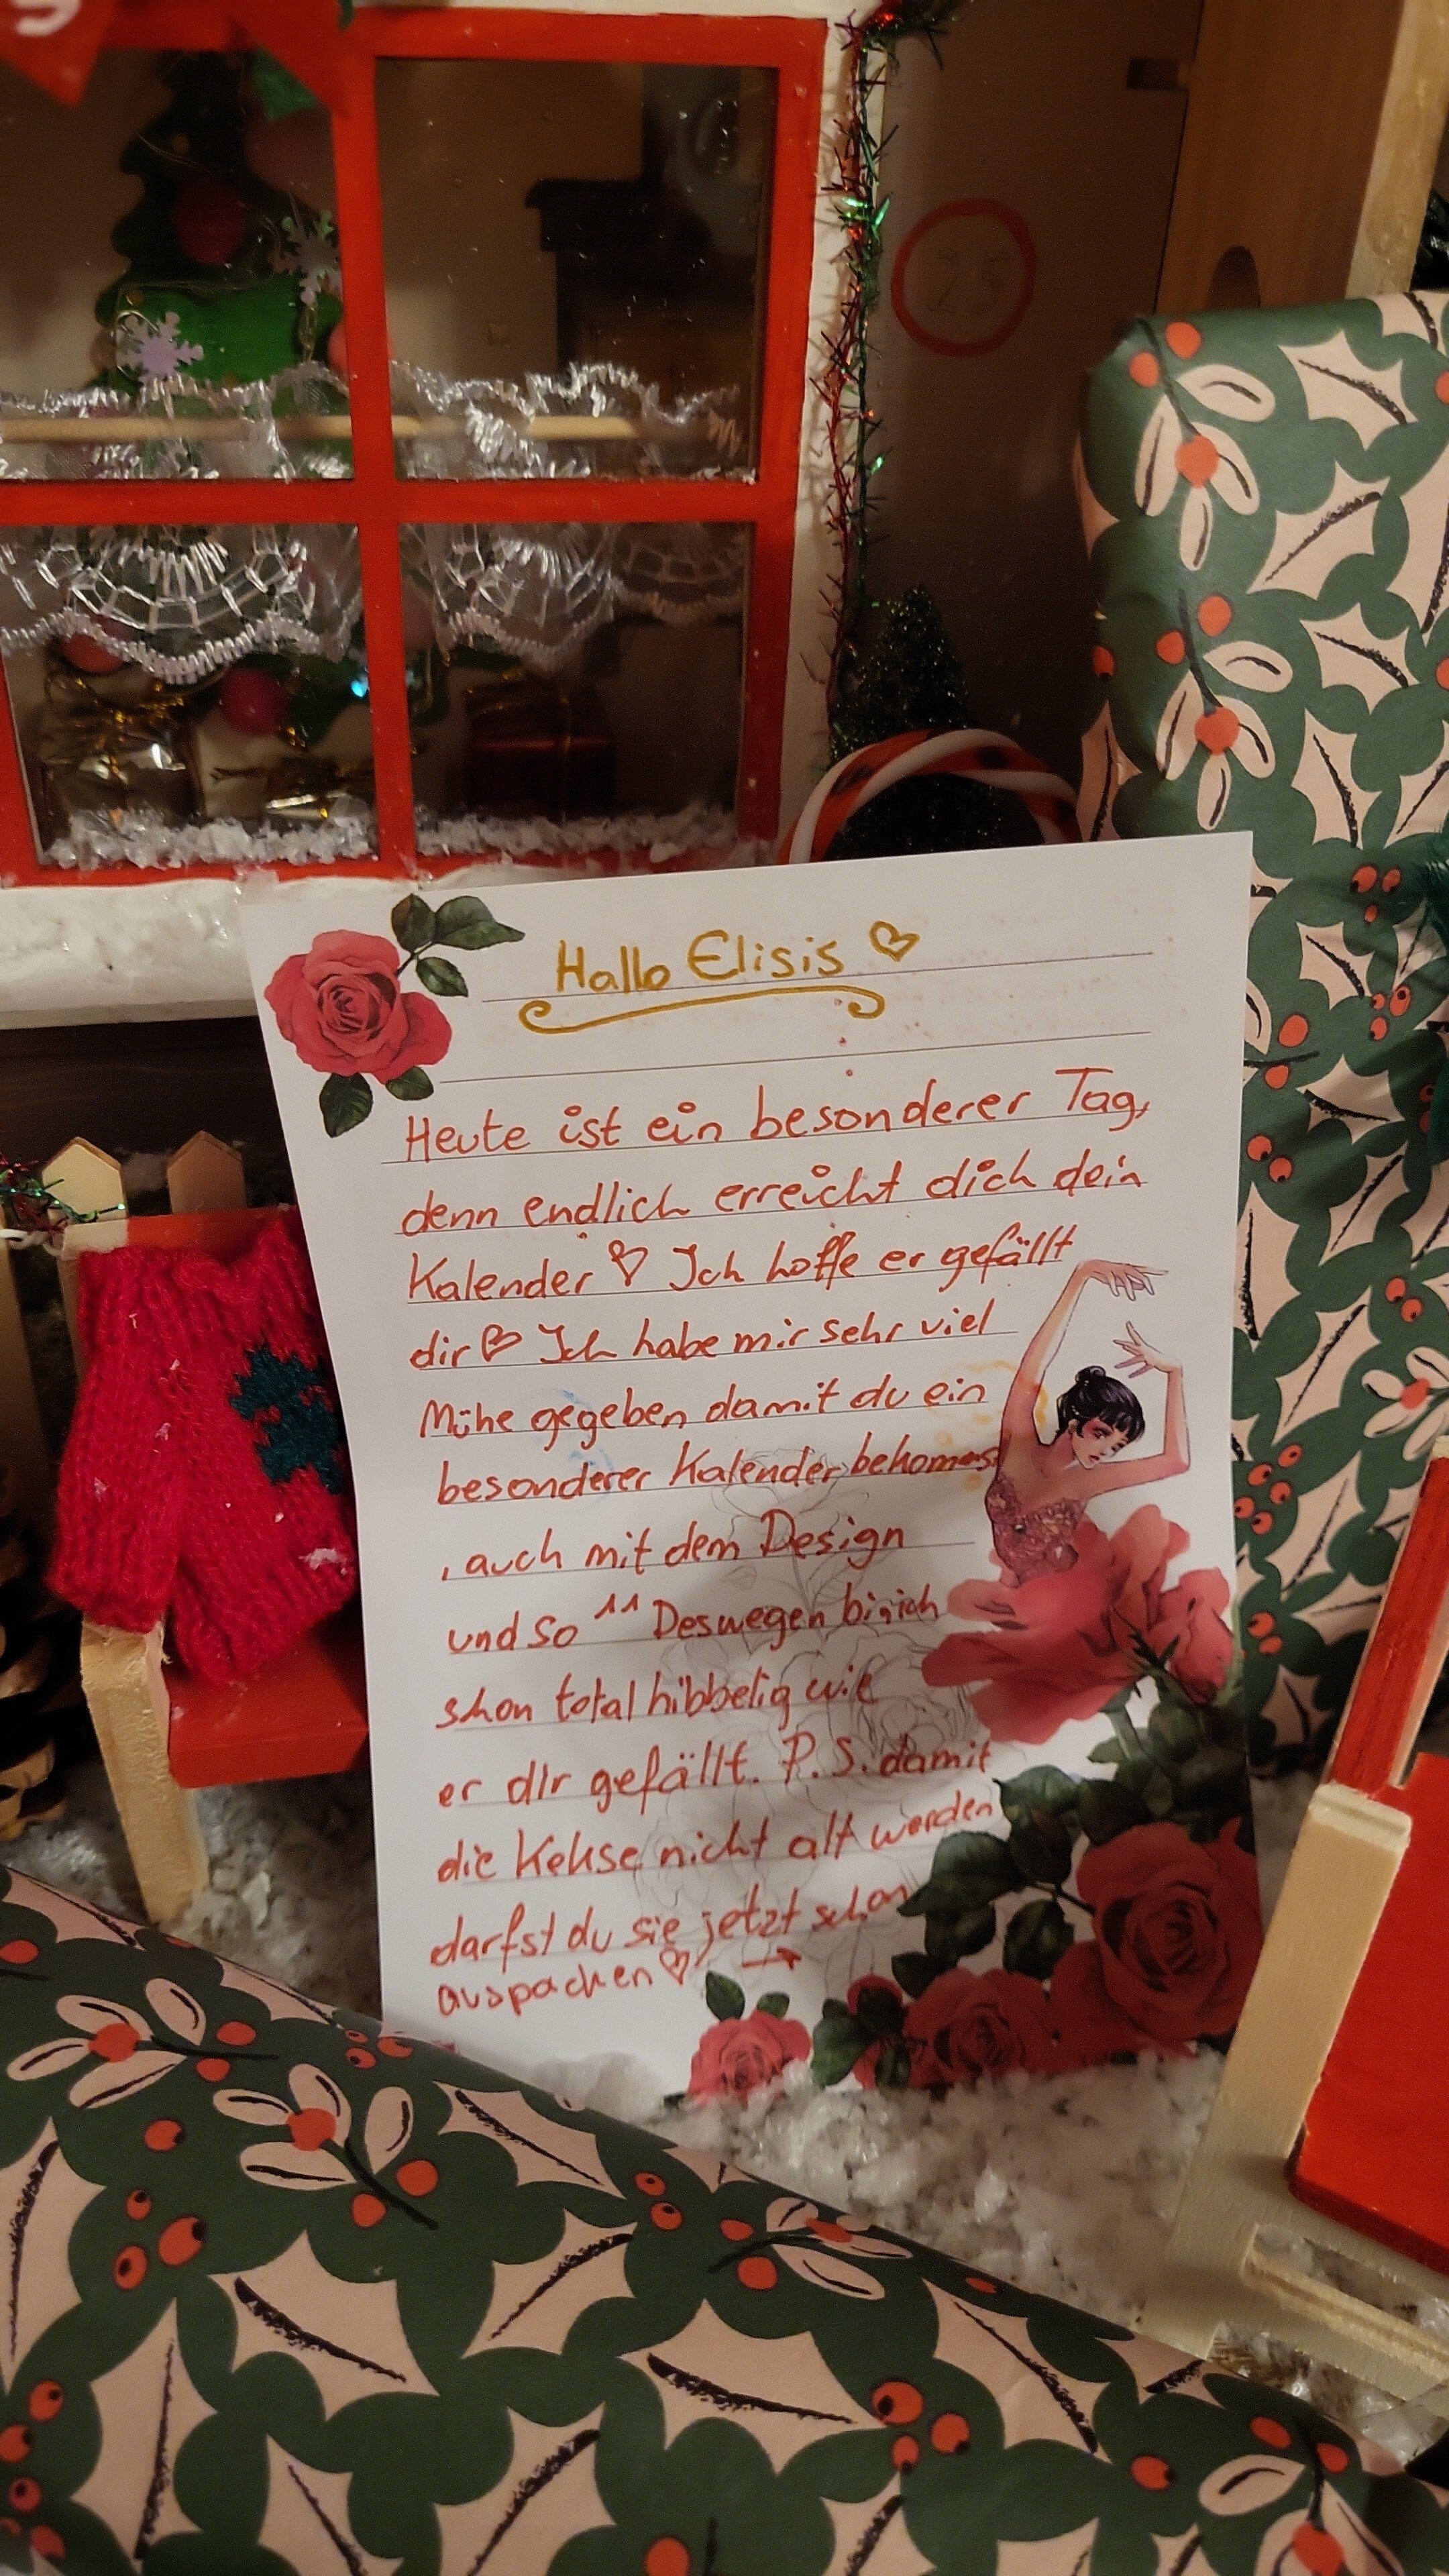 25
Hallo Elisis ♡
Heute ist ein besonderer Tag,
denn endlich erreicht dich dein
Kalender ♡ Ich hoffe er gefällt
dir ♡ Ich habe mir sehr viel
Mühe gegeben damit du ein
besonderer Kalender bekommst
, auch mit dem Design
und so ^^ Deswegen bin ich
schon total hibbelig wie
er dir gefällt. P.S. damit
die Kekse nicht alt werden
darfst du sie jetzt schon
auspacken ♡ →